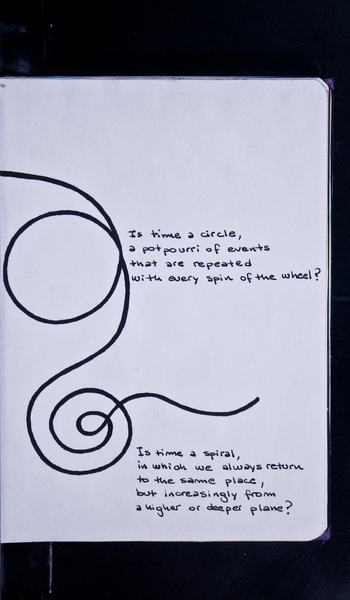 Is time a circle,
a potpourri of events
that are repeated
with every spin of the wheel?
Is time a spiral,
in which we always return
to the same place,
but increasingly from
a higher or deeper plane?